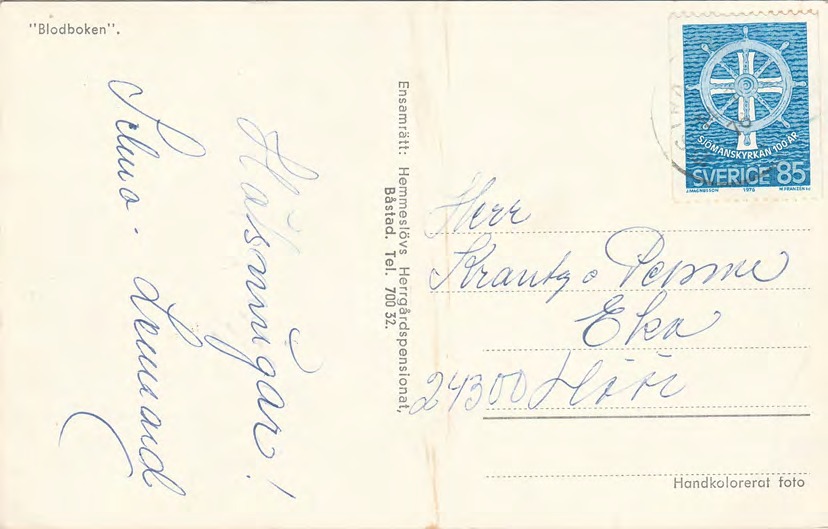 "Blodboken".
Hälsningar!
Selma - Lennard
Ensamrätt: Hemmeslövs Herrgårdspensionat,
Båstad. Tel. 700 32.
SJÖMANSKYRKAN 100 ÅR
SVERIGE 85
J.MAGNUSSON 1976 M.FRANZÉN SC
Herr
Krantz o
Eka
24300 Höör
Handkolorerat foto